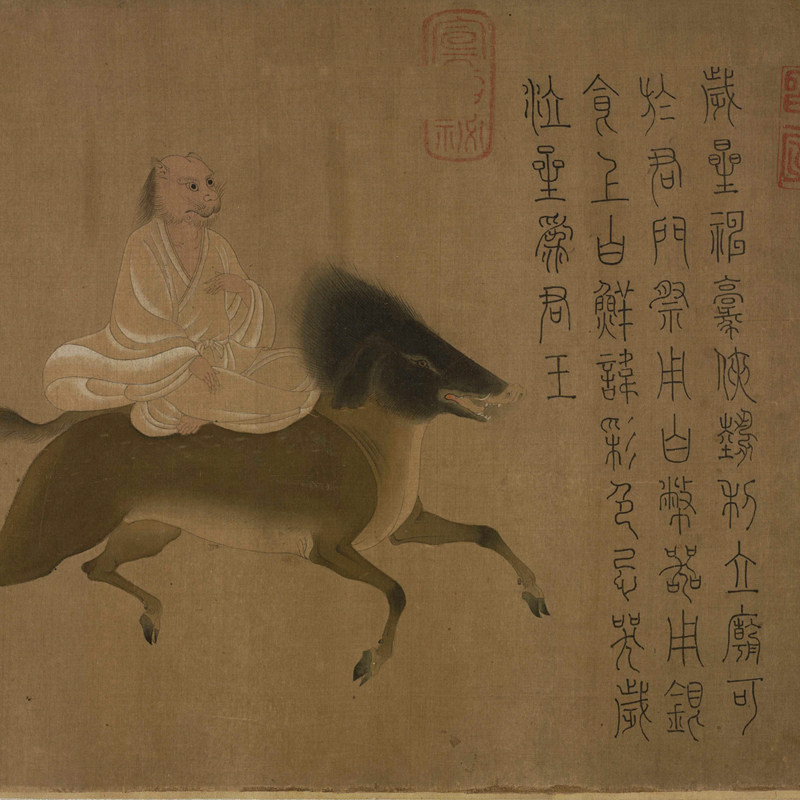 歲星神豪俠勢利立廟可
於君門祭用白幣器用銀
食上白鮮諱彩色忌哭歲
泣星為君王